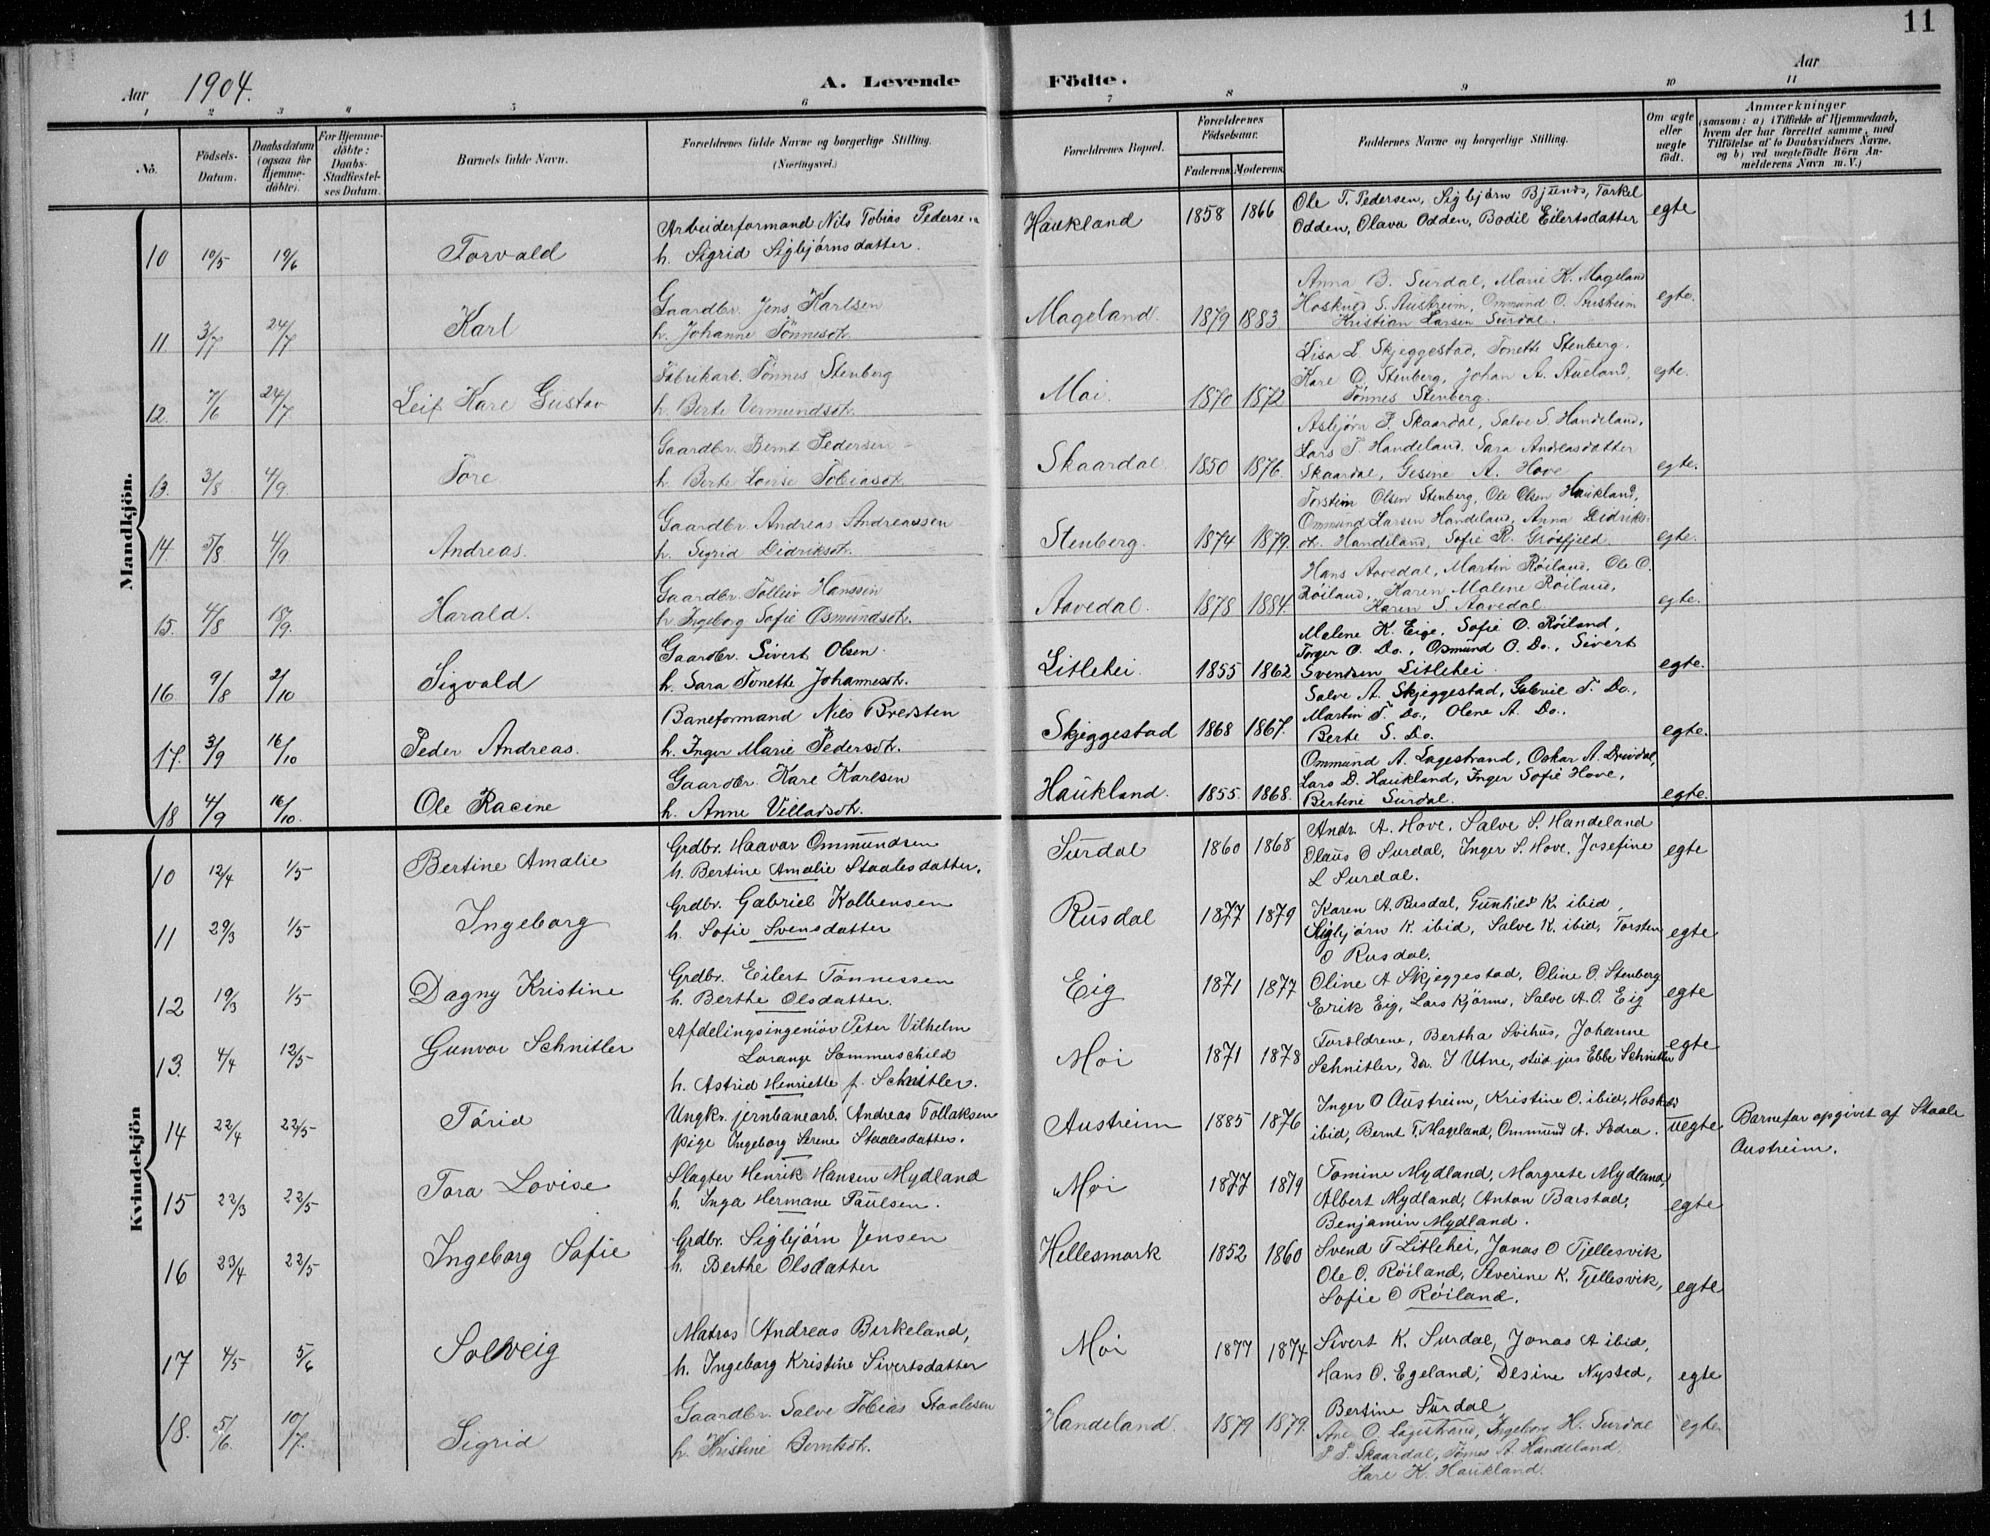 11
Aar 1904. A. Levende Födte. Aar
1 2 3 4 5 6 7 8 9 10 11
No. Födsels-Datum. Daabsdatum (ogsaa for Hjemmedöbte). For Hjemmedöbte: Daabs-Stadfæstelses Datum. Barnets fulde Navn. Forældrenes fulde Navne og borgerlige Stilling. (Næringsvei.) Forældrenes Bopæl. Forældrenes Födselsaar. Faderens. Moderens. Faddernes Navne og borgerlige Stilling. Om ægte eller uægte födt. Anmærkninger (saasom: a) i Tilfælde af Hjemmedaab, hvem der har forrettet samme, med Tilföielse af to Daabsvidners Navne, og b) ved uægtefödte Börn Anmelderens Navn m. V.)
Mandkjön.
10 10/5 19/6 Torvald Arbeiderformand Nils Tobias Pedersen
h. Sigrid Sigbjörnsdatter. Haukland 1858 1866 Ole T. Pedersen, Sigbjörn Bjunes, Torkel
Odden, Olava Odden, Bodil Eilertsdatter egte
11 3/7 24/7 Karl Gaardbr. Jens Karlsen
h. Johanne Tönnesdt. Mageland. 1879 1883 Anna B. Surdal, Marie K. Mageland
Hoskuld S. Austreim, Ommund O. Austreim
Kristian Larsen Surdal. egte.
12. 7/6 24/7 Leif Kare Gustav Fabrikarb. Tönnes Stenberg
h. Berte Vermundsdt. Moi. 1870 1872 Lisa L. Skjeggestad, Tonette Stenberg.
Kare O. Stenberg, Johan A. Aueland,
Tönnes Stenberg. egte.
13. 3/8 4/9. Tore Gaardbr. Bernt Pedersen
h. Berte Lovise Tobiasdt. Skaardal 1850 1876. Asbjörn P. Skaardal, Salve S. Handeland,
Lars T. Handeland, Sara Andreasdatter
Skaardal, Gesine A. Hove egte.
14. 5/8. 4/9 Andreas. Gaardbr. Andreas Andreassen
h. Sigrid Didriksdt. Stenberg. 1874 1879. Torstein Olsen Stenberg, Ole Olsen Haukland,
Ommund Larsen Handeland, Anna Didriks-
dt. Handeland, Sofie R. Grösfjeld. egte.
15. 4/8 18/9. Harald. Gaardbr. Tolleiv Hanssen
h. Ingeborg Sofie Osmundsdt. Aavedal. 1878 1884 Hans Aavedal, Martin Röiland, Ole O.
Röiland, Karen Malene Röiland,
Karen S. Aavedal. egte.
16. 9/8 2/10 Sigvald Gaardbr. Sivert Olsen.
h. Sara Tonette Johannesdt. Litlehei. 1855 1862 Malene K. Eige, Sofie O. Röiland,
Torger O. Do., Osmund O. Do., Sivert
Svendsen Litlehei. egte.
17. 3/9 16/10 Peder Andreas. Baneformand Nils Bredsten
h. Inger Marie Pedersdt. Skjeggestad 1868 1867. Salve A. Skjeggestad, Gabriel T. Do.,
Martin T. Do., Olene A. Do.,
Berte S. Do. egte.
18 4/9 16/10. Ole Racine Gaardbr. Karl Karlsen
h. Anne Villadsdt. Haukland. 1855. 1868. Ommund A. Lagestrand, Oskar A. Drivdal,
Lars D. Haukland, Inger Sofie Hove,
Bertine Surdal. egte.
Kvindekjön
10 12/4 1/5 Bertine Amalie Grdbr. Haavar Ommundsen
h. Bertine Amalie Staalesdatter. Surdal 1860 1868 Andr. A. Hove, Salve S. Handeland
Olaus O Surdal, Inger S. Hove, Josefine
L Surdal. egte
11 29/3 1/5 Ingeborg Grdbr. Gabriel Kolbensen
h. Sofie Svensdatter Rusdal 1877 1879 Karen A. Rusdal, Gunhild K. ibid,
Sigbjörn K. ibid, Salve K. ibid, Torsten
O Rusdal. egte
12 19/3 1/5 Dagny Kristine Grdbr. Eilert Tönnessen
h. Berthe Olsdatter. Eig 1871 1877 Oline A Skjeggestad, Oline O. Stenberg
Erik Eig, Lars Kjörms, Salve A. O. Eig egte
13. 4/4 12/5 Gunvor Schnitler Afdelingsingeniör Peter Vilhelm
Lorange Sommerschild
h. Astrid Henriette f. Schnitler. Moi 1871 1878 Foroldrene, Bertha Svihus, Johanne
Schnitler, Dr. I Utne, stud jus Ebbe Schnitler egte
14 22/4 22/5 Törid Ungkr. jernbanearb. Andreas Tollaksen
pige Ingeborg Serene Staalesdatter. Austreim 1885 1876 Inger O Austreim, Kristine O. ibid, Hoskold
ibid, Bernt T. Mageland, Ommund A. Sodra. uegte Barnefar opgivet af Staale
Austreim.
15 22/3 22/5 Tora Lovise Slagter Henrik Hansen Mydland
h. Inga Hermane Paulsen. Moi 1877 1879 Tomine Mydland, Margrete Mydland,
Albert Mydland, Anton Barstad,
Benjamin Mydland. egte
16 23/4 22/5 Ingeborg Sofie Grdbr. Sigbjörn Jensen
h. Berthe Olsdatter Hellesmark 1852 1860 Svend T Litlehei, Jonas O Tjellesvik
Ole O. Röiland, Severine K. Tjellesvik,
Sofie O Röiland. egte
17 4/5 5/6 Solveig Matros Andreas Birkeland,
h. Ingeborg Kristine Sivertsdatter Moi 1877 1874 Sivert K. Surdal, Jonas A ibid,
Hans O. Egeland, Desine Nysted,
Bertine Surdal egte
18. 5/6 10/7. Sigrid Gaardbr. Salve Tobias Staalesen
h. Kristine Berntsdt. Handeland. 1879 1879. Ane O. Lagestrand, Ingeborg H. Surdal
P P. Skaardal, Tönnes A. Handeland
Karl K. Haukland. egte